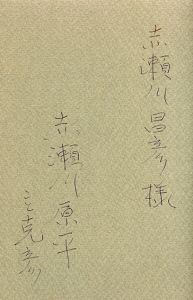 赤瀬川昌彦様
赤瀬川原平
こと克彦